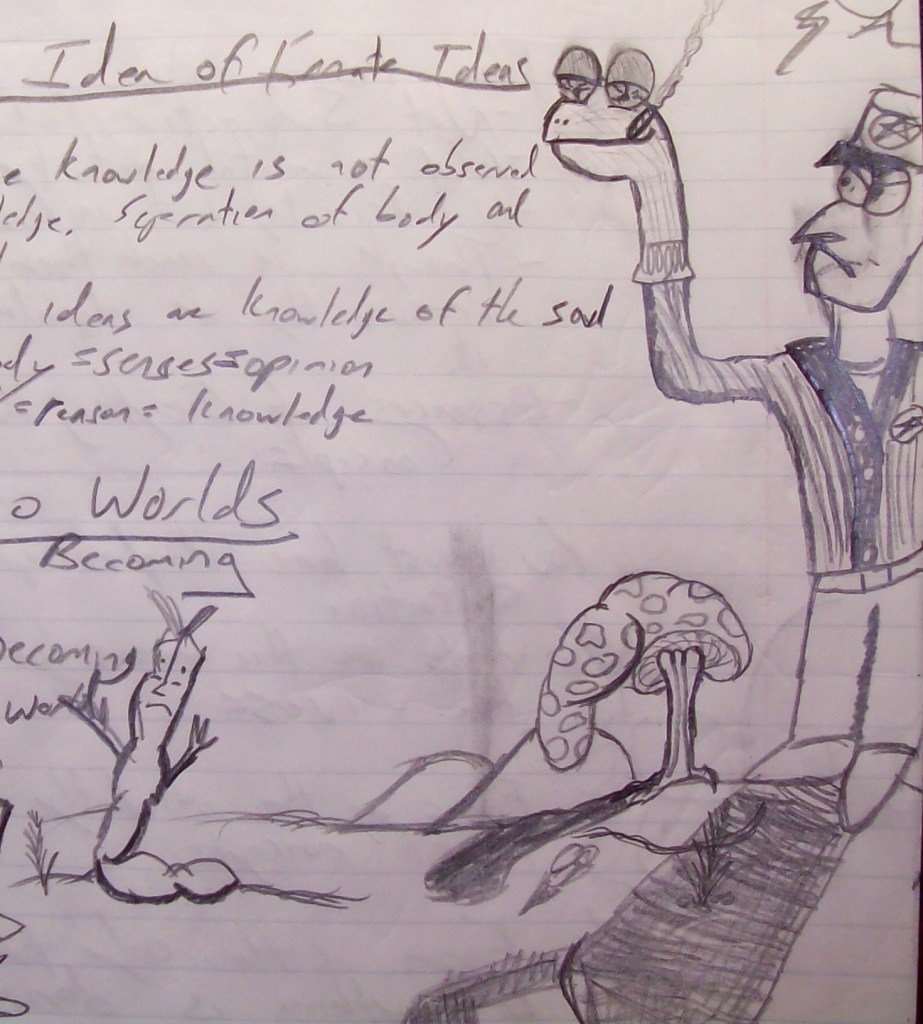 Idea of Innate Ideas
e knowledge is not observed
ledge. Seperation of body and
ideas are knowledge of the soul
ody =senses=opinion
=reason= knowledge
o Worlds
Becoming
Becoming
World